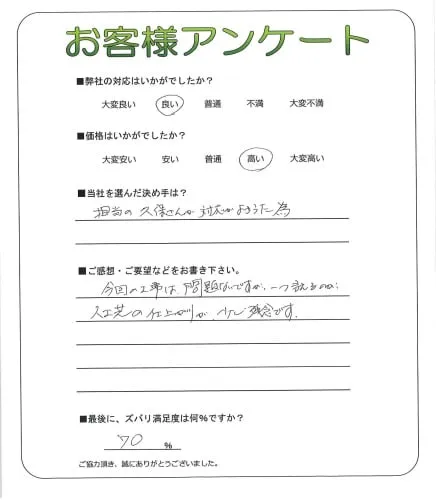 お客様アンケート
■弊社の対応はいかがでしたか？
大変良い 良い 普通 不満 大変不満
■価格はいかがでしたか？
大変安い 安い 普通 高い 大変高い
■当社を選んだ決め手は？
担当の久保さんが対応がよさそうだった為
■ご感想・ご要望などをお書き下さい。
今回の工事は、問題ないですが、一つ言えるのは、
人工芝の仕上がりが、少し残念です。
■最後に、ズバリ満足度は何%ですか？
70 %
ご協力頂き、誠にありがとうございました。